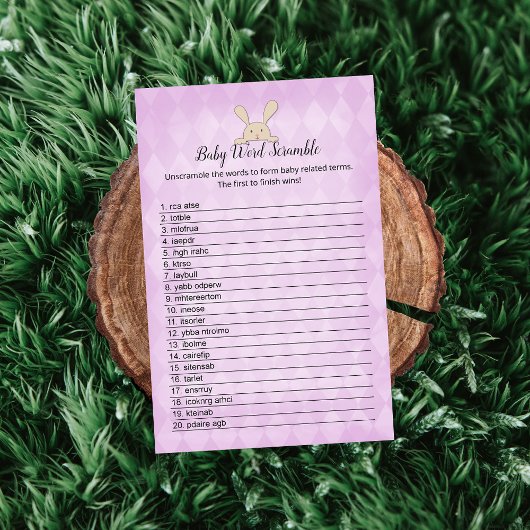 Baby Word Scramble
Unscramble the words to form baby related terms.
The first to finish wins!
1. rca atse
2. totble
3. mlofrua
4. iaepdr
5. ihgh irahc
6. ktrso
7. laybull
8. yabb odperw
9. mhtereertom
10. ineose
11. itsorler
12. ybba ntroimo
13. ibolme
14. cairefip
15. sitensab
16. tarlet
17. ensrruy
18. icoknrg arhci
19. kteinab
20. pdaire agb